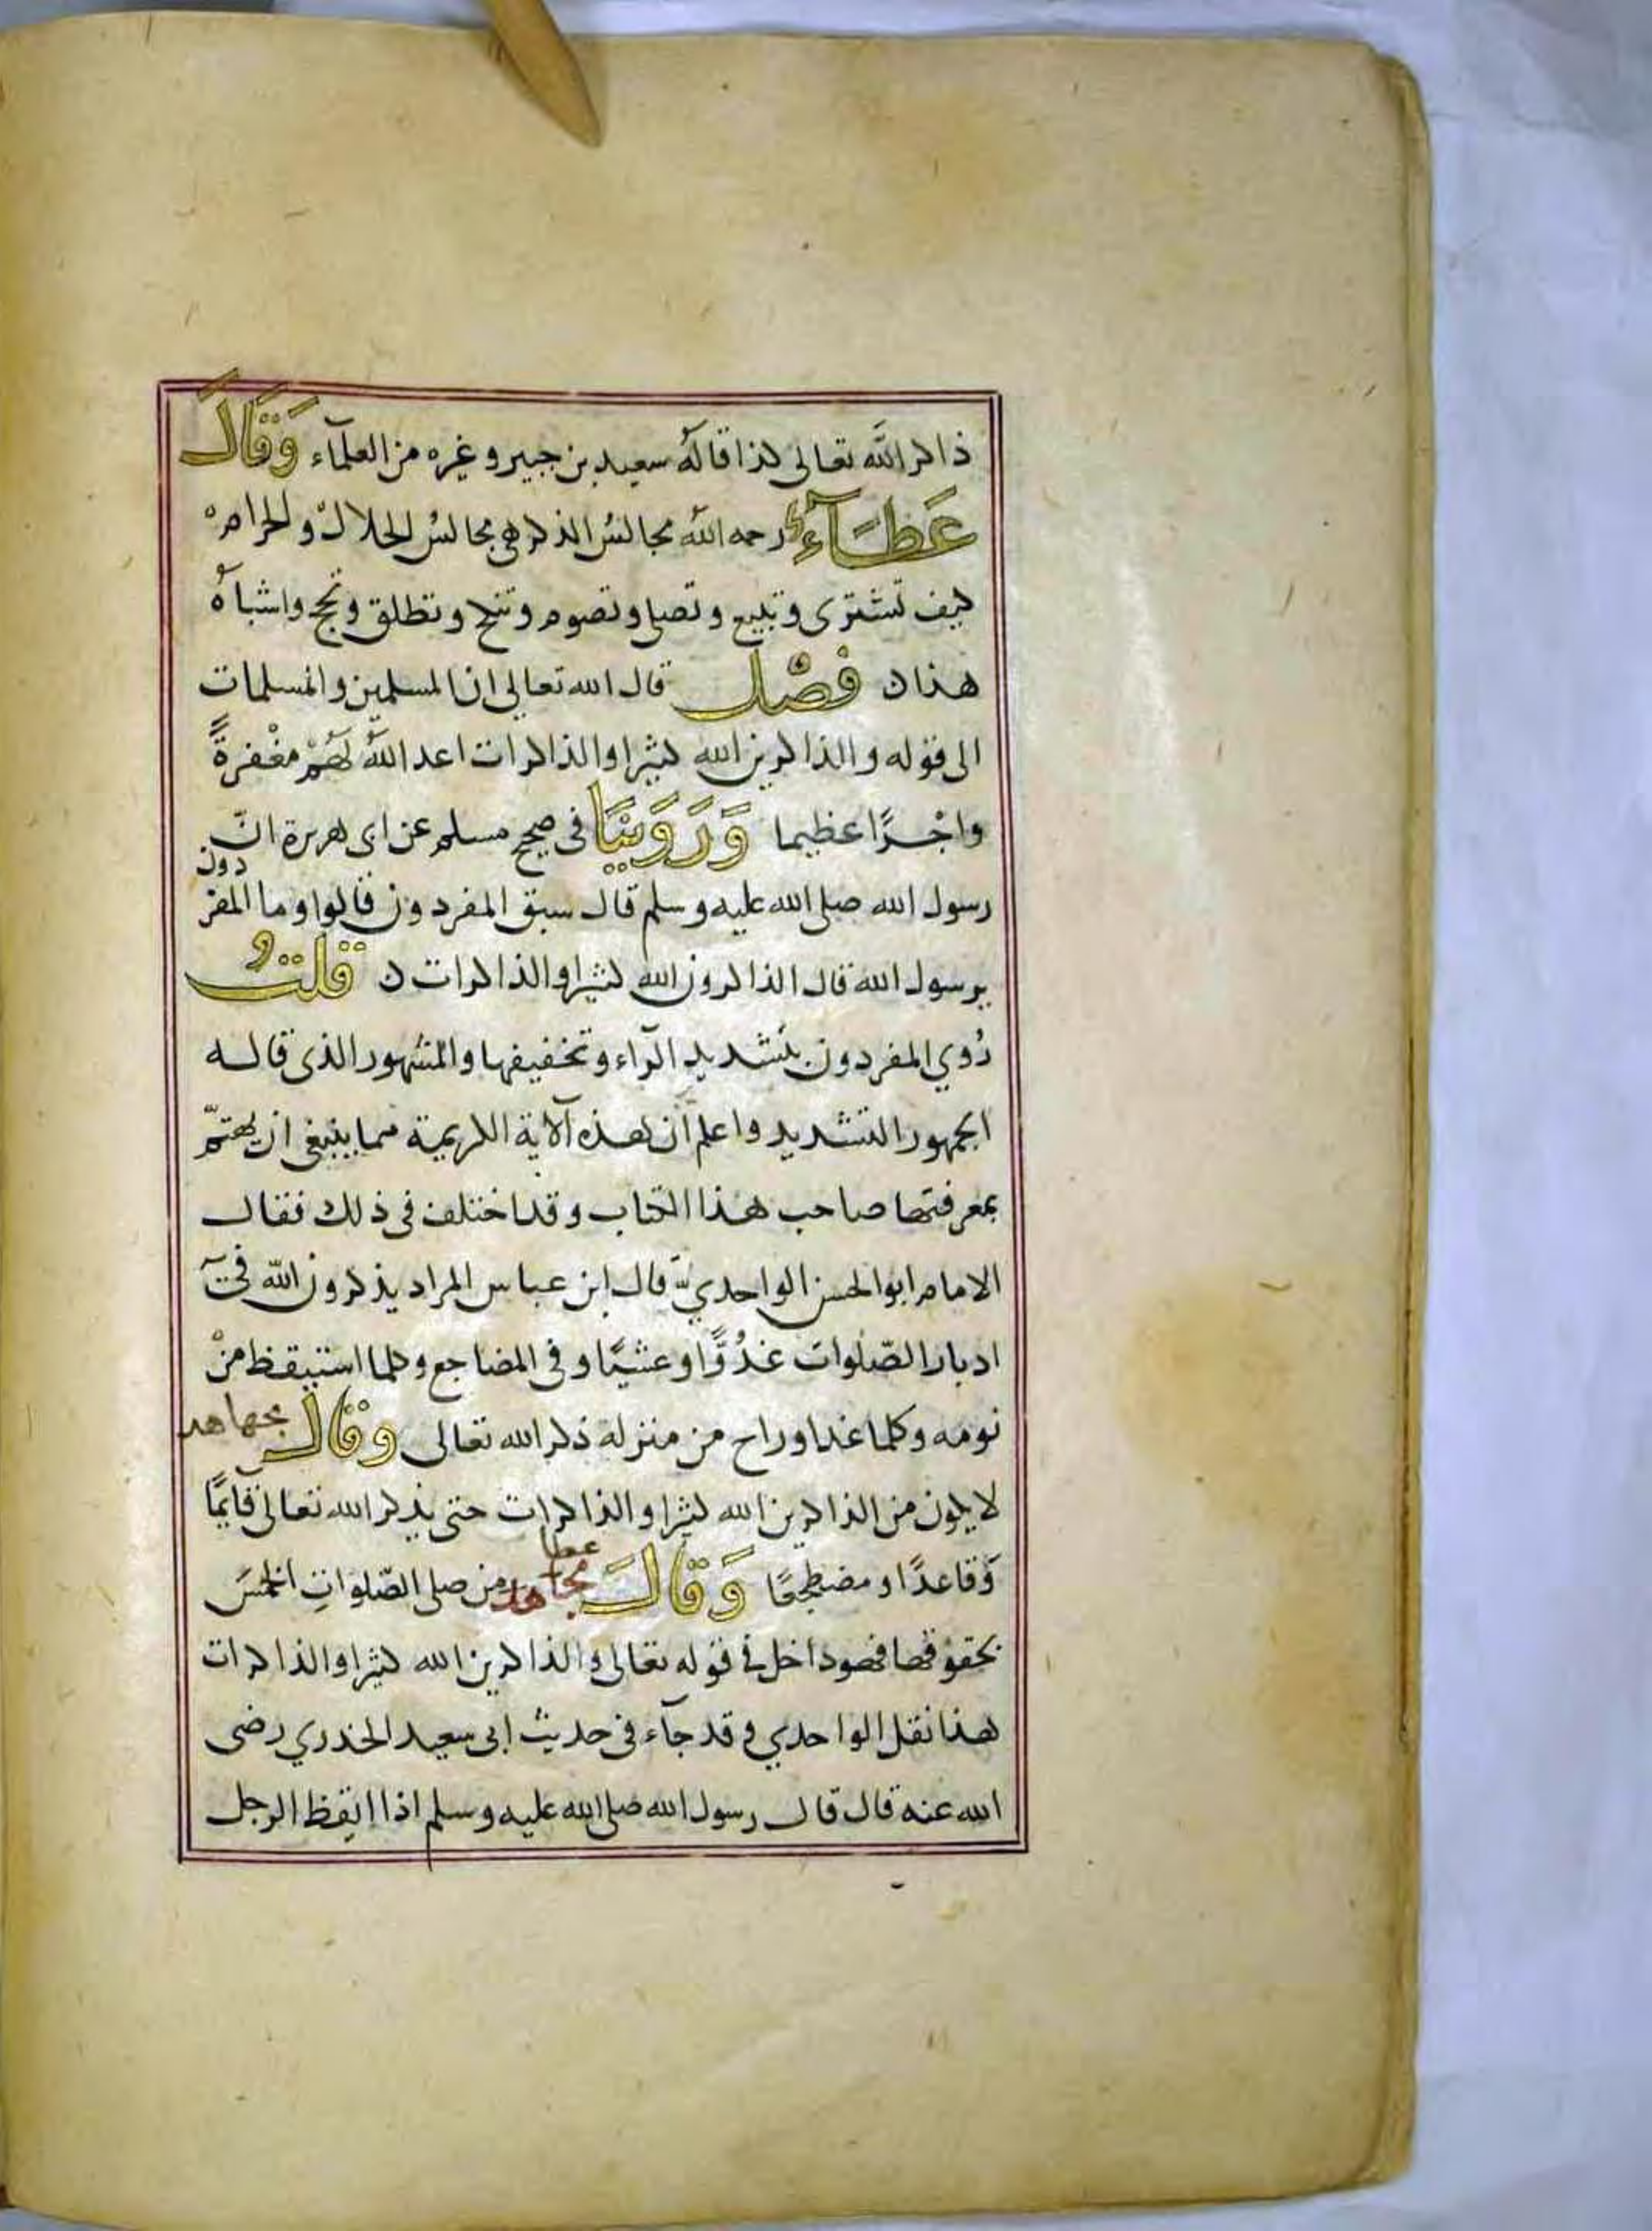 ذاكر الله تعالى كذا قاله سعيد بن جبير وغيره من العلمآء وَقَالَ
عَطَآءٌ رحمه الله مجالسُ الذكر هى مجالسُ الحلال والحرام
كيف تشترى وتبيع وتصلى وتصوم وتنكح وتطلق وتحج واشباهُ
هذا فَصْل قال الله تعالى ان المسلمين والمسلمات
الى قوله والذاكرين الله كثيرا والذاكرات اعد اللهُ لَهُمْ مغْفرةً
واجْرًا عظيما وَرَوَيْنَا فى صحيح مسلم عن ابى هريرة انّ
رسول الله صلى الله عليه وسلم قال سبق المفردون قالوا وما المفردون
يرسول الله قال الذاكرون الله كثيرا والذاكرات قلتُ
رُوي المفردون بتشديد الرآء وتخفيفها والمشهور الذى قاله
الجمهور التشديد واعلم ان هذه الآية الكريمة مما ينبغى ان يهتمّ
بمعرفتها صاحب هذا الكتاب وقد اختلف فى ذلك فقال
الامام ابو الحسن الواحديّ قال ابن عباس المراد يذكرون الله فى
ادبار الصّلوات غُدُوًّا وعشيًّا وفى المضاجع وكلما استيقظ منْ
نومه وكلما غدا وراح من منزله ذكر الله تعالى وقال مجاهد
لا يكون من الذاكرين الله كثيرا والذاكرات حتى يذكر الله تعالى قآيمًا
وقاعدًا ومضطجعًا وَقَالَ عطا مجاهد من صلى الصّلواتِ الخمسَ
بحقوقها فهو داخل فى قوله تعالى والذاكرين الله كثيرا والذاكرات
هذا نقل الواحدي وقد جآء فى حديث ابى سعيد الخدري رضى
الله عنه قال قال رسول الله صلى الله عليه وسلم اذا ايقظ الرجل